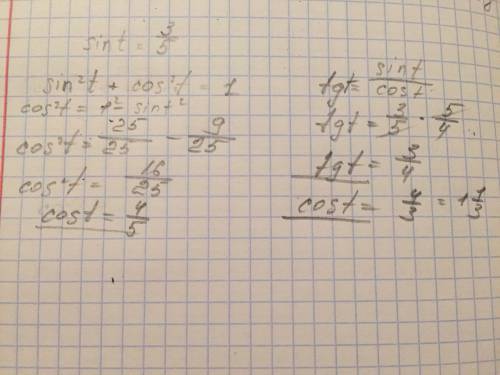 sint = 3/5
sin²t + cos²t = 1
cos²t = 1² - sint²
cos²t = 25/25 - 9/25
cos²t = 16/25
cost = 4/5
tgt = sint/cost
tgt = 3/5 · 5/4
tgt = 3/4
cost = 4/3 = 1 1/3